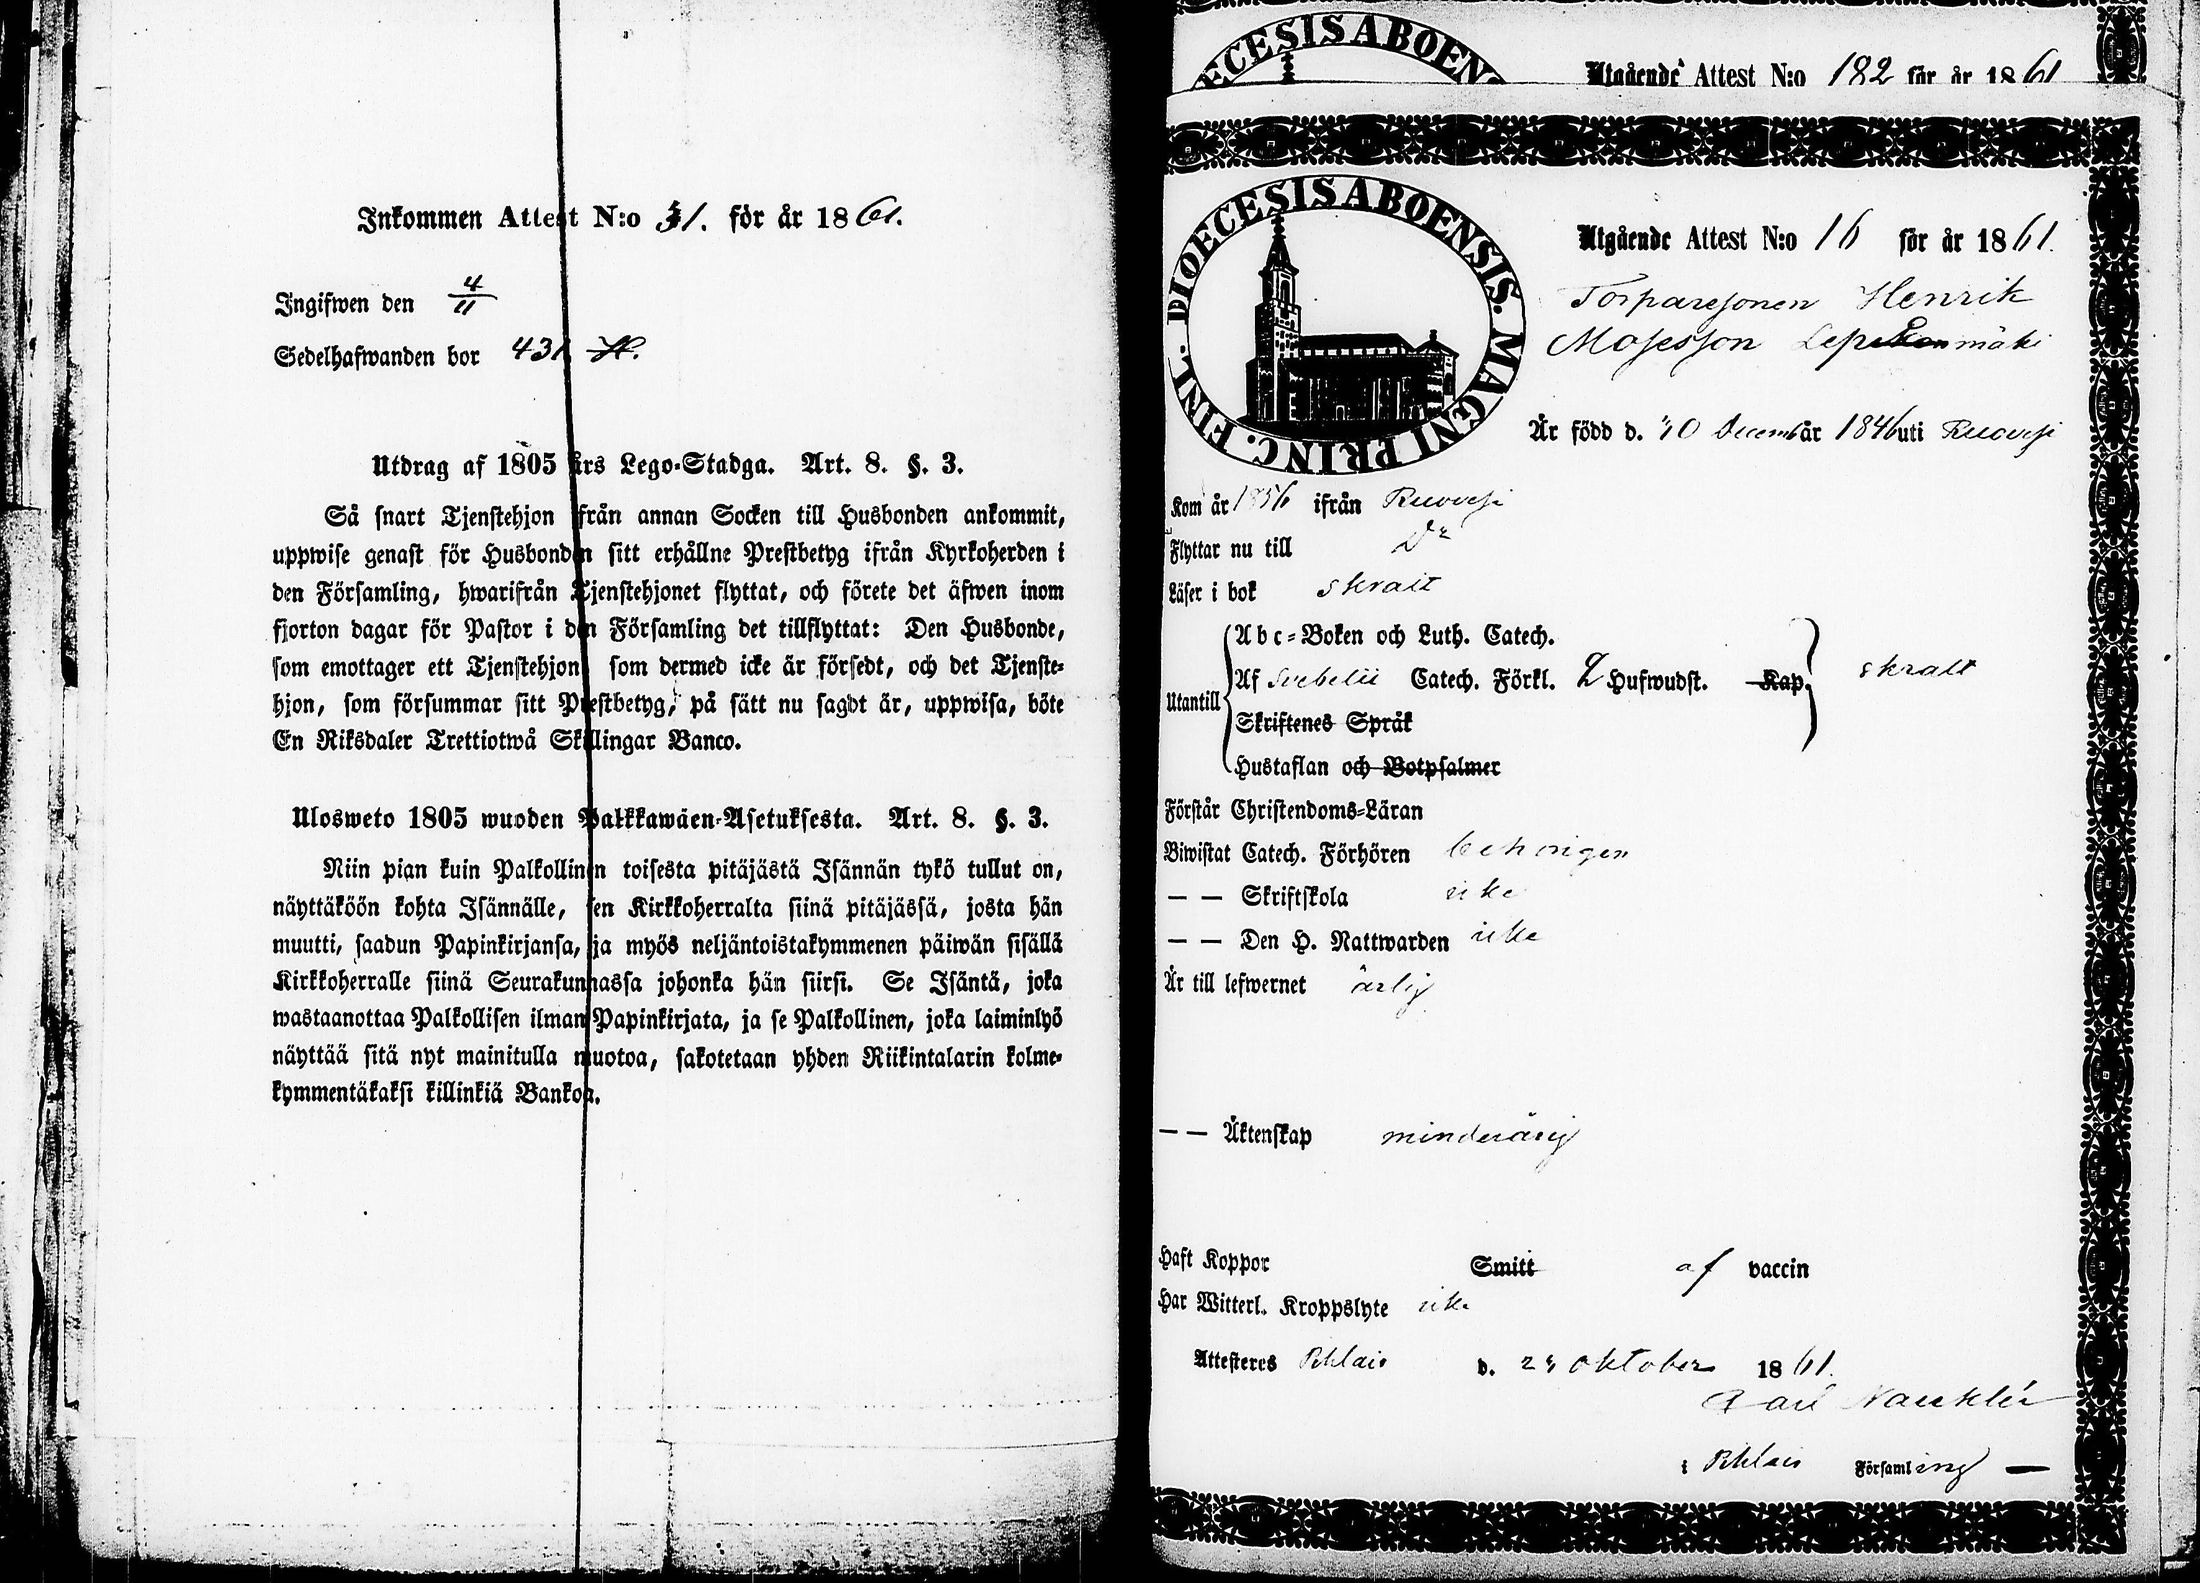 Inkommen Attest N:o 31. för år 1861.
Ingifwen den 4/11
Sedelhafwanden bor 431
Utdrag af 1805 års Lego-Stadga. Art. 8. §. 3.
Så snart Tjenstehjon ifrån annan Socken till Husbonden ankommit,
uppwise genast för Husbonden sitt erhållne Prestbetyg ifrån Kyrkoherden i
den Församling, hwarifrån Tjenstehjonet flyttat, och förete det äfwen inom
fjorton dagar för Pastor i den Församling det tillflyttat: Den Husbonde,
som emottager ett Tjenstehjon, som dermed icke är försedt, och det Tjenste-
hjon, som försummar sitt Prestbetyg, på sätt nu sagdt är, uppwisa, böte
En Riksdaler Trettiotwå Skillingar Banco.
Ulosweto 1805 wuoden Palkkawäen-Asetuksesta. Art. 8. §. 3.
Niin pian kuin Palkollinen toisesta pitäjästä Isännän tykö tullut on,
näyttäköön kohta Isännälle, sen Kirkkoherralta siinä pitäjässä, josta hän
muutti, saadun Papinkirjansa, ja myös neljäntoistakymmenen päiwän sisällä
Kirkkoherralle siinä Seurakunnassa johonka hän siirsi. Se Isäntä, joka
wastaanottaa Palkollisen ilman Papinkirjata, ja se Palkollinen, joka laiminlyö
näyttää sitä nyt mainitulla muotoa, sakotetaan yhden Riikintalarin kolme-
kymmentäkaksi killinkiä Bankoa.
ECESIS ABOENS
Utgående Attest N:o 182 för år 1861
DIOECESIS ABOENSIS. MAGNI PRINC. FINL.
Utgående Attest N:o 16 för år 1861.
Torparesonen Henrik
Mosesson mäki
Är född d. 30 Decemb år 1846 uti Ruovesi
Kom år 1856 ifrån Ruovesi
Flyttar nu till Do
Läser i bok skralt
Abc-Boken och Luth. Catech.
Utantill Af Svebelii Catech. Förkl. 2 Hufwudst. Kap. skralt
Skriftenes Språk
Hustaflan och Botpsalmer
Förstår Christendoms-Läran
Biwistat Catech. Förhören behörigen
— — Skriftskola icke
— — Den H. Nattwarden icke
Är till lefwernet ärlig
— — Äktenskap minderårig
Haft Koppor Smitt af vaccin
Har Witterl. Kroppslyte icke
Attesteres Pihlais d. 23 oktober 1861.
Carl Nauklér
i Pihlais Församling —